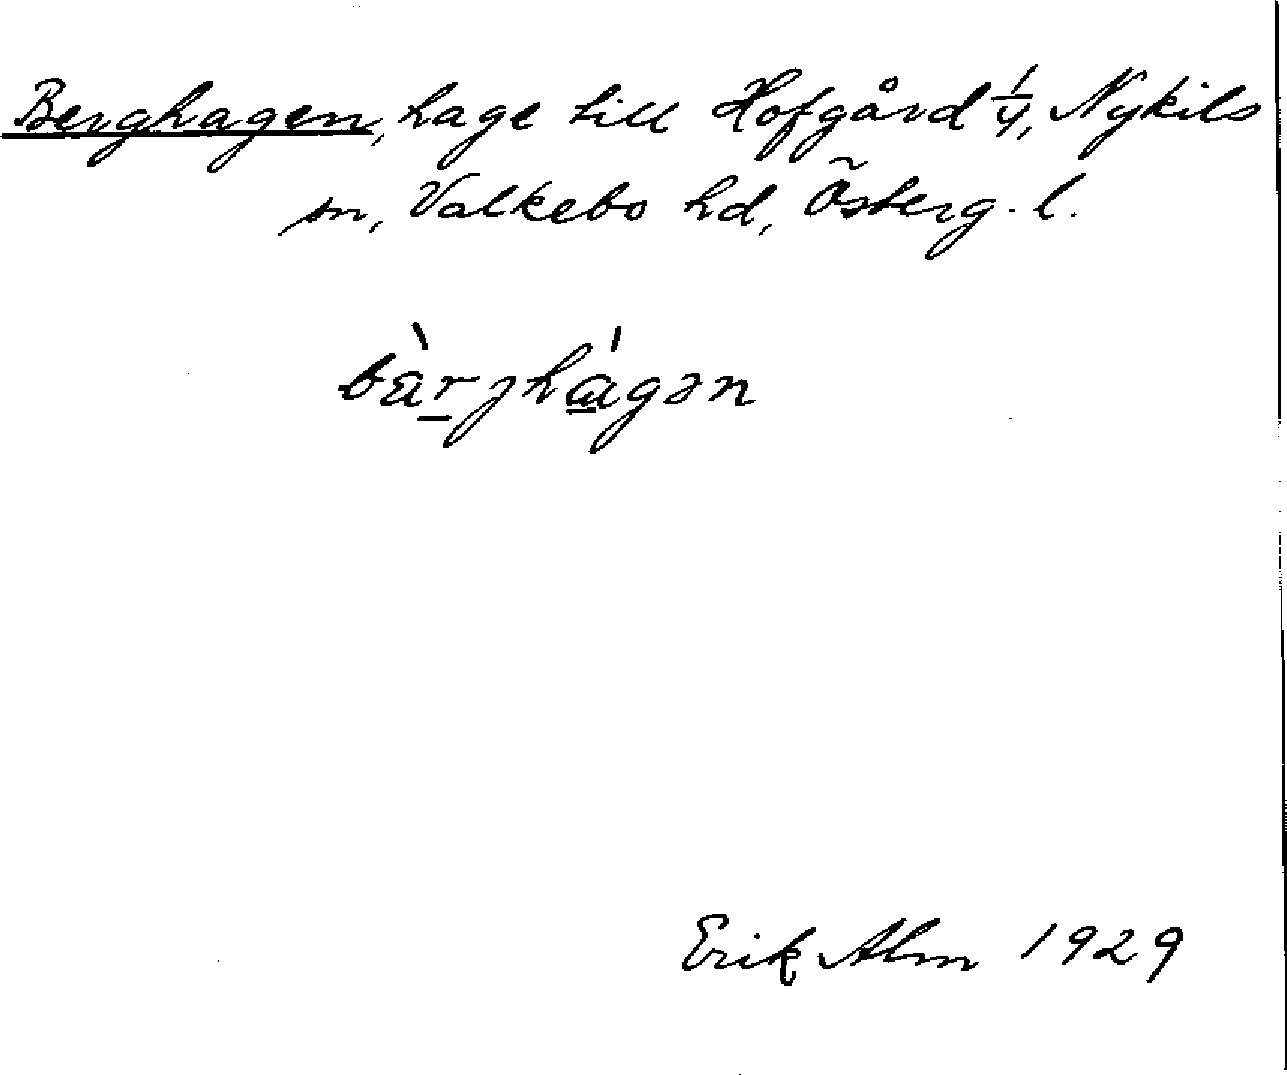 Berghagen, hage till Hofgård 1/4, Nykils
sn, Valkebo hd, Österg. l.
bàrjhágən
Erik Alm 1929